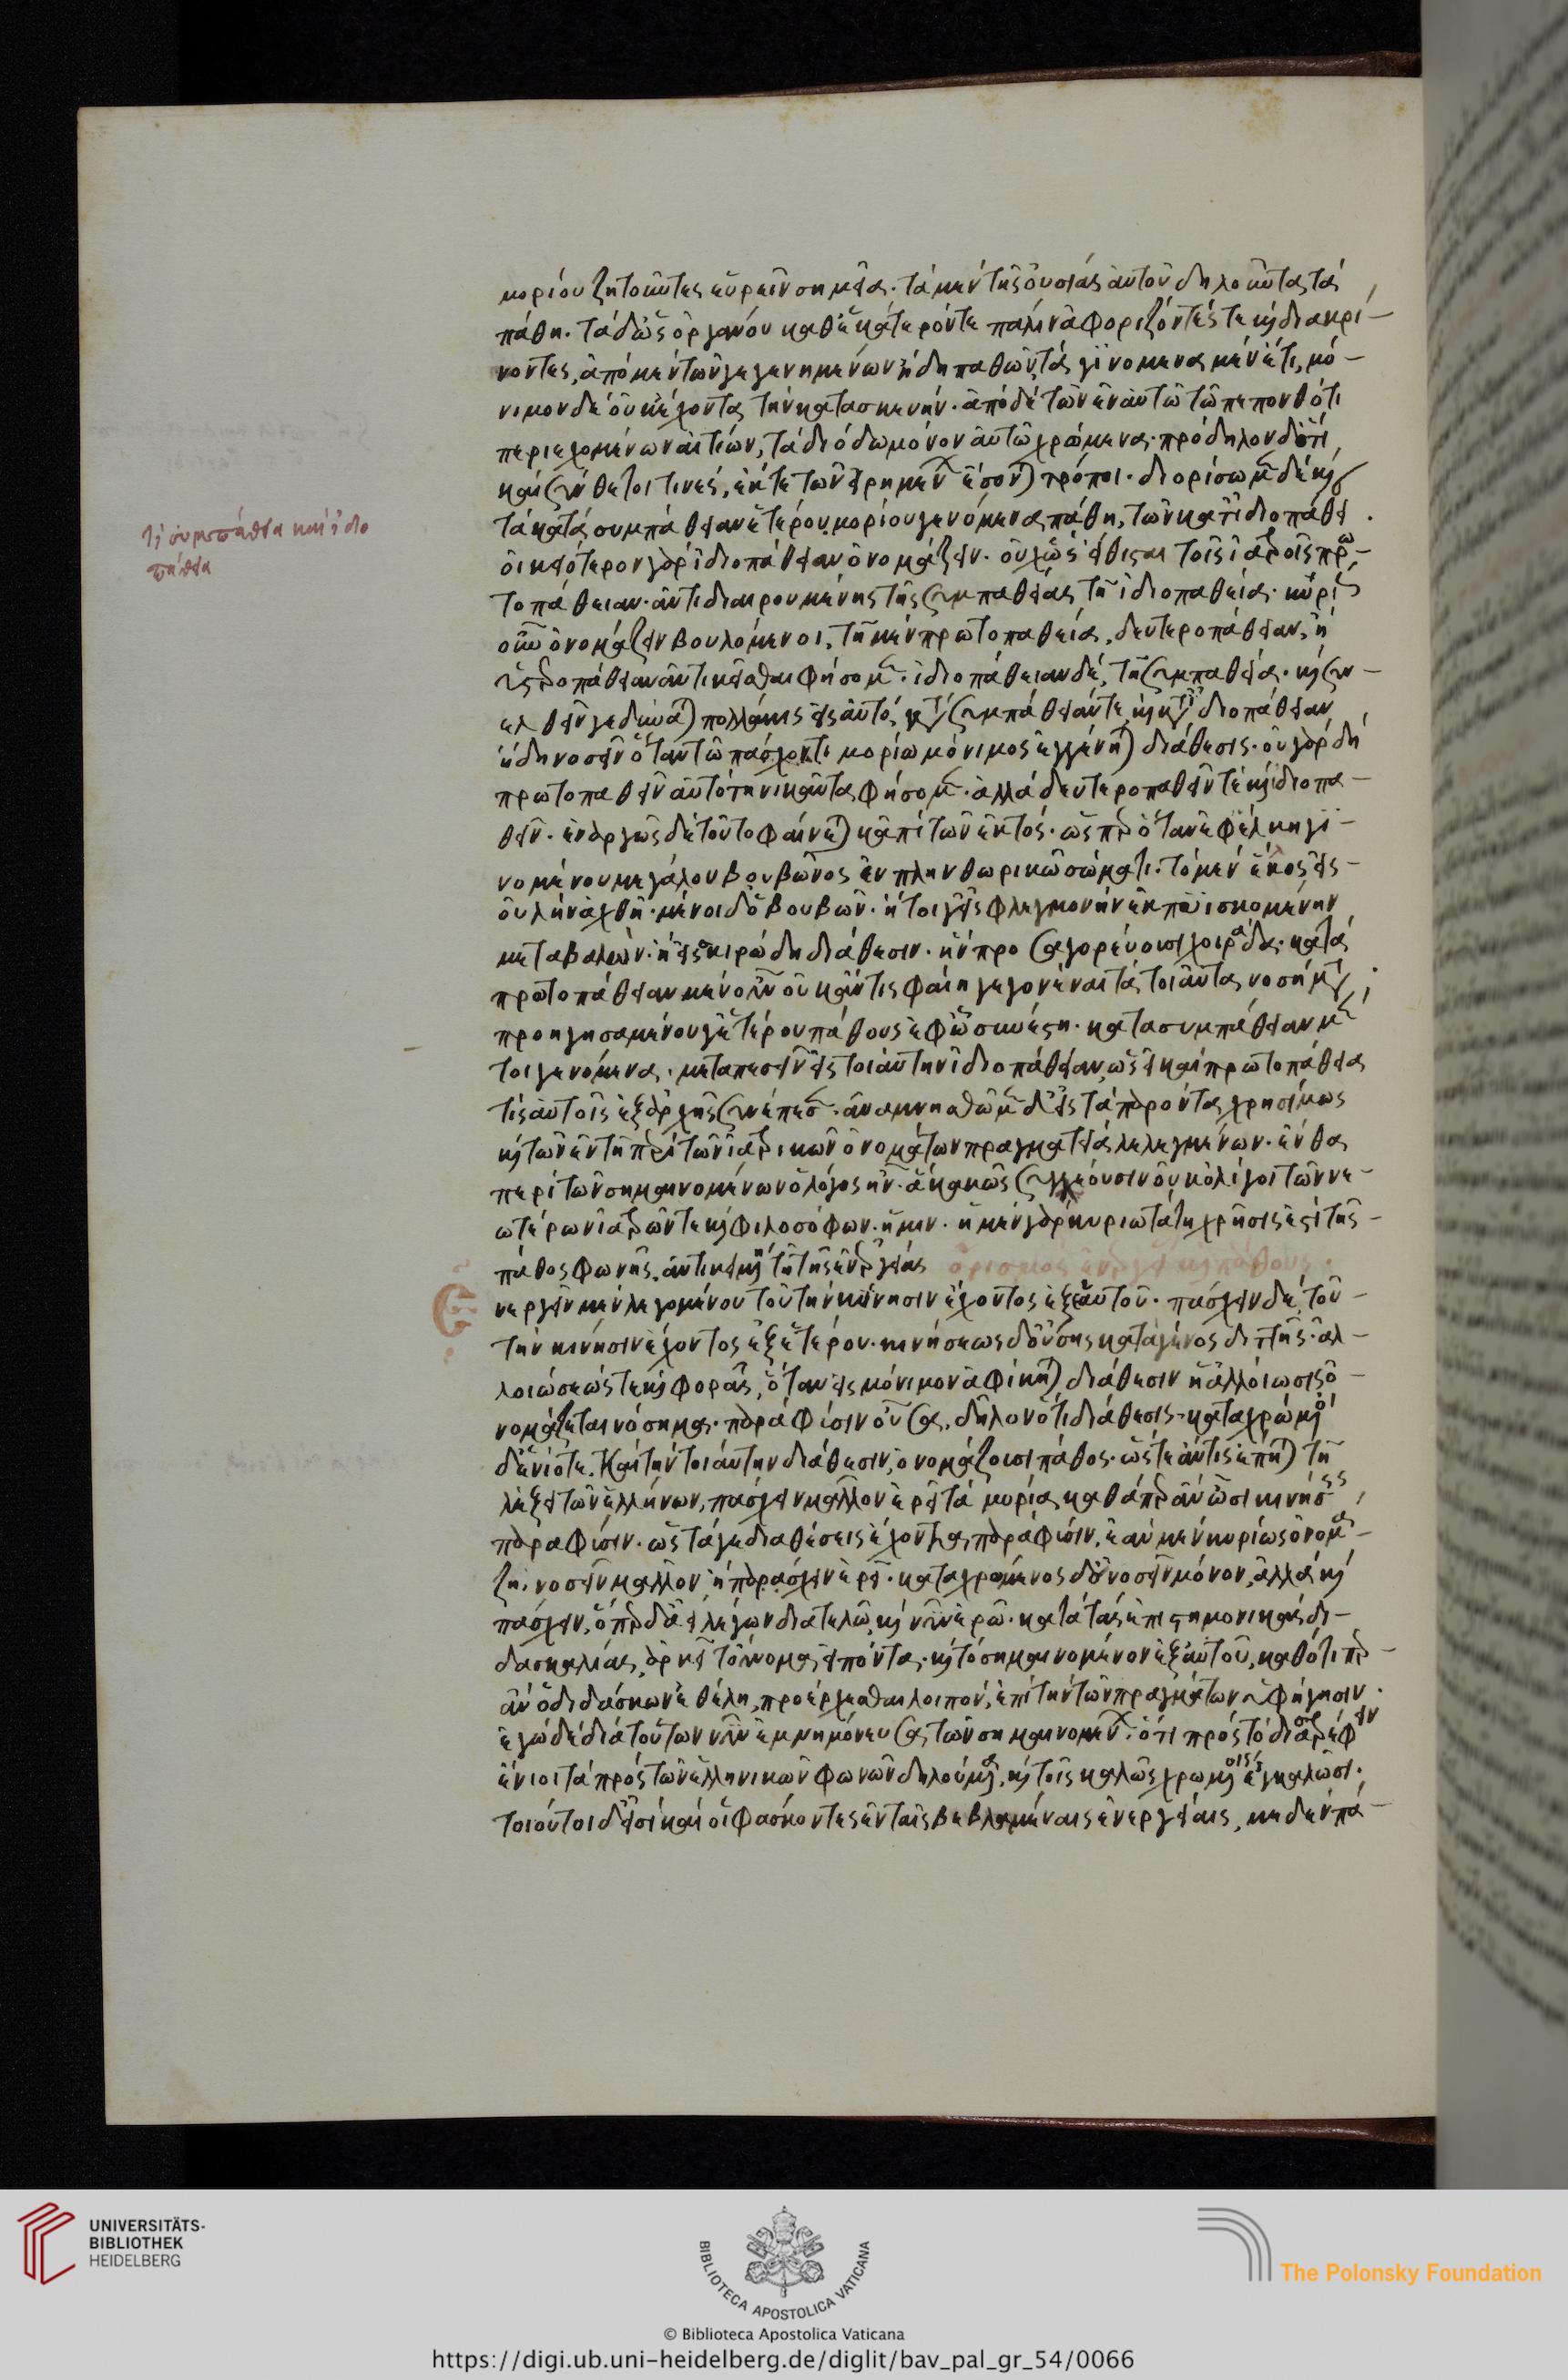 μορίου ζητοῦντες εὑρεῖν σημεῖα. τὰ μὲν τῆς οὐσίας αὐτοῦ δηλοῦντα τὰ
πάθη. τὰ δ' ὡς ὀργάνου καθ' ἑκάτερόν τε πάλιν ἀφορίζοντές τε καὶ διακρί-
νοντες, ἀπὸ μὲν τῶν γεγενημένων ἤδη παθῶν τὰ γινόμενα μὲν ἔτι, μό-
νιμον δὲ οὐκ ἔχοντα τὴν κατασκευήν. ἀπὸ δὲ τῶν ἐν αὐτῷ τῷ πεπονθότι
περιεχομένων αἰτίων, τὰ διόδῳ μόνον αὐτῷ χρώμενα. πρόδηλον δ' ὅτι
καὶ σύνθετοί τινες, ἔκ τε τῶν εἰρημένων ἔσονται τρόποι. διορίσωμεν δὲ καὶ
τὰ κατὰ συμπάθειαν ἑτέρου μορίου γενόμενα πάθη, τῶν κατ' ἰδιοπάθει
τί συμπάθεια καὶ ἰδιο
πάθεια
οἰκειότερον γὰρ ἰδιοπάθειαν ὀνομάζειν. οὐχ ὡς εἴθισται τοῖς ἰατροῖς πρω-
τοπάθειαν. ἀντιδιαιρουμένης τῆς συμπαθείας τῇ ἰδιοπαθείᾳ. κυρίως
οὕτω ὀνομάζειν βουλόμενοι, τῇ μὲν πρωτοπαθείᾳ, δευτεροπάθειαν, ἢ
ὑστεροπάθειαν ἀντικεῖσθαι φήσομεν. ἰδιοπάθειαν δέ, τῇ συμπαθείᾳ. καὶ συν-
ελθεῖν γε δύναται πολλάκις εἰς αὐτό, κατὰ συμπάθειάν τε, καὶ κατ' ἰδιοπάθειαν
ἤδη νοσεῖν ὅταν τῷ πάσχοντι μορίῳ μόνιμος ἐγγένηται διάθεσις. οὐ γὰρ δὴ
πρωτοπαθεῖν αὐτὸ τηνικαῦτα φήσομεν. ἀλλὰ δευτεροπαθεῖν τε καὶ ἰδιοπα-
θεῖν. ἐναργῶς δὲ τοῦτο φαίνεται κἀπὶ τῶν ἐκτός. ὥσπερ ὅταν ἐφ' ἕλκει γι-
νομένου μεγάλου βουβῶνος ἐν πληθωρικῷ σώματι. τὸ μὲν ἕλκος εἰς
οὐλὴν ἀχθῇ. μένοι δ' ὁ βουβών. ἤτοι γ' εἰς φλεγμονὴν ἐκπυϊσκομένην
μεταβαλών. ἢ εἰς χοιρώδη διάθεσιν. ἣν προσαγορεύουσι χοιράδα. κατὰ
πρωτοπάθειαν μὲν οὖν οὐκ ἄν τις φαίη γεγονέναι τὰ τοιαῦτα νοσήματα,
προηγησαμένου γ' ἑτέρου πάθους ἐφ' ᾧ συνέστη. κατὰ συμπάθειαν μέν
τοι γενόμενα. μεταπεσεῖν εἰς τοιαύτην ἰδιοπάθειαν, ὡς εἰ καὶ πρωτοπάθεια
τις αὐτοῖς ἐξ ἀρχῆς συνέπεσεν. ἀναμνησθῶμεν δ' εἰς τὰ παρόντα χρησίμως
καὶ τῶν ἐν τῇ περὶ τῶν ἰατρικῶν ὀνομάτων πραγματείᾳ λελεγμένων. ἔνθα
περὶ τῶν σημαινομένων ὁ λόγος ἦν. ἃ κακῶς συγχέουσιν οὐκ ὀλίγοι τῶν νε-
ωτέρων ἰατρῶν τε καὶ φιλοσόφων. ἡμῖν. ἡ μὲν γὰρ κυριωτάτη χρῆσίς ἐστι τῆς
πάθος φωνῆς. ἀντικειμένη τῇ τῆς ἐνεργείας ὁρισμὸς ἐνεργείας καὶ πάθους.
Ενεργεῖν μὲν λεγομένου τοῦ τὴν κίνησιν ἔχοντος ἐξ ἑαυτοῦ. πάσχειν δὲ, τοῦ
τὴν κίνησιν ἔχοντος ἐξ ἑτέρου. κινήσεως δ' οὔσης κατὰ γένος διττῆς. ἀλ-
λοιώσεώς τε καὶ φορᾶς, ὅταν εἰς μόνιμον ἀφίκηται διάθεσιν ἡ ἀλλοίωσις ὀ-
νομάζεται νόσημα. παρὰ φύσιν οὖσα, δηλονότι διάθεσις. καταχρώμενοι
δ' ἐνίοτε. καὶ τὴν τοιαύτην διάθεσιν, ὀνομάζουσι πάθος. ὥστε ἄν τις ἕπηται τῇ
λέξει τῶν ἑλλήνων, πάσχειν μᾶλλον ἐρεῖ τὰ μόρια, καθάπερ ἂν ὦσι κινήσεις
παρὰ φύσιν. ὡς τά γε διαθέσεις ἔχοντα παρὰ φύσιν, ἐὰν μὲν κυρίως ὀνομά-
ζῃ, νοσεῖν μᾶλλον ἤπερ πάσχειν ἐρεῖ. καταχρώμενος δ' οὐ νοσεῖν μόνον, ἀλλὰ καὶ
πάσχειν, ὅπερ δ' ἀεὶ λέγων διατελῶ, καὶ νῦν ἐρῶ. κατὰ τὰς ἐπιστημονικὰς δι-
δασκαλίας, ἀρκεῖ τοὔνομα εἰπόντα. καὶ τὸ σημαινόμενον ἐξ αὐτοῦ, καθότι περ
ἂν ὁ διδάσκων ἐθέλῃ, προέρχεσθαι λοιπόν, ἐπὶ τὴν τῶν πραγμάτων ὑφήγησιν.
ἐγὼ δὲ διὰ τοῦτων νῦν ἐμνημόνευσα τῶν σημαινομένων. ὅτι πρὸς τὸ διαστρέφειν
ἔνιοι τὰ πρὸς τῶν ἑλληνικῶν φωνῶν δηλούμενα, καὶ τοῖς καλῶς χρωμένοις ἐγκαλῶσι.
τοιοῦτοι δ' εἰσὶ καὶ οἱ φάσκοντες ἐν ταῖς βεβλαμμέναις ἐνεργείαις, μηδὲν πά-
UNIVERSITÄTS-
BIBLIOTHEK
HEIDELBERG
BIBLIOTECA APOSTOLICA VATICANA
The Polonsky Foundation
© Biblioteca Apostolica Vaticana
https://digi.ub.uni-heidelberg.de/diglit/bav_pal_gr_54/0066